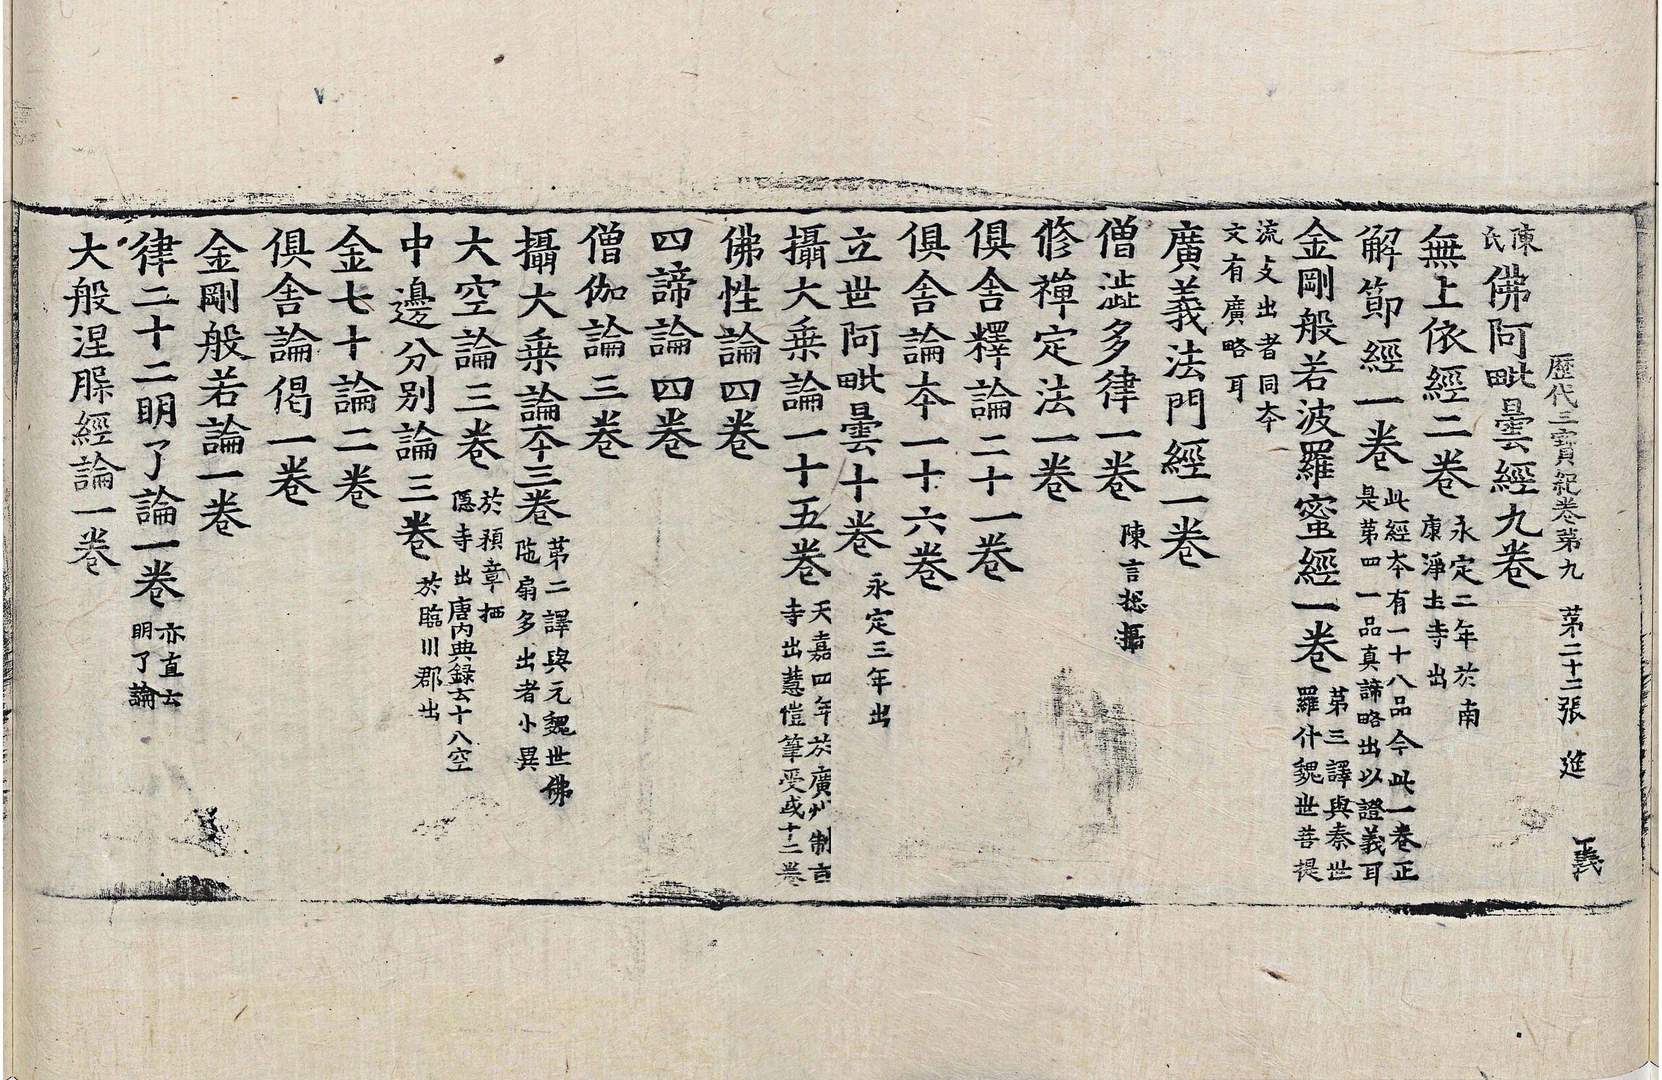 歷代三寶紀卷第九 第二十二張 㢟 義
陳氏 佛阿毗曇經九卷
無上依經二卷 永定二年於南康淨土寺出
解節經一卷 此經夲有一十八品今此一卷正是第四一品真諦略出以證義耳
金剛般若波羅蜜經一卷 第三譯與秦世羅什魏世菩提
流支出者同夲文有廣略耳
廣義法門經一卷
僧澁多律一卷 陳言摠攝
修禪定法一卷
俱舍釋論二十一卷
俱舍論夲一十六卷
立世阿毗曇十卷 永定三年出
攝大乗論一十五卷 天嘉四年於廣州制旨寺出慧愷筆受或十二卷
佛性論四卷
四諦論四卷
僧伽論三卷
攝大乗論夲三卷 第二譯與元魏世佛陁扇多出者小異
大空論三卷 於豫章栖隱寺出唐内典録云十八空
中邊分別論三卷 於臨川郡出
金七十論二卷
俱舍論偈一卷
金剛般若論一卷
律二十二明了論一卷 亦直云明了論
大般涅槃經論一卷